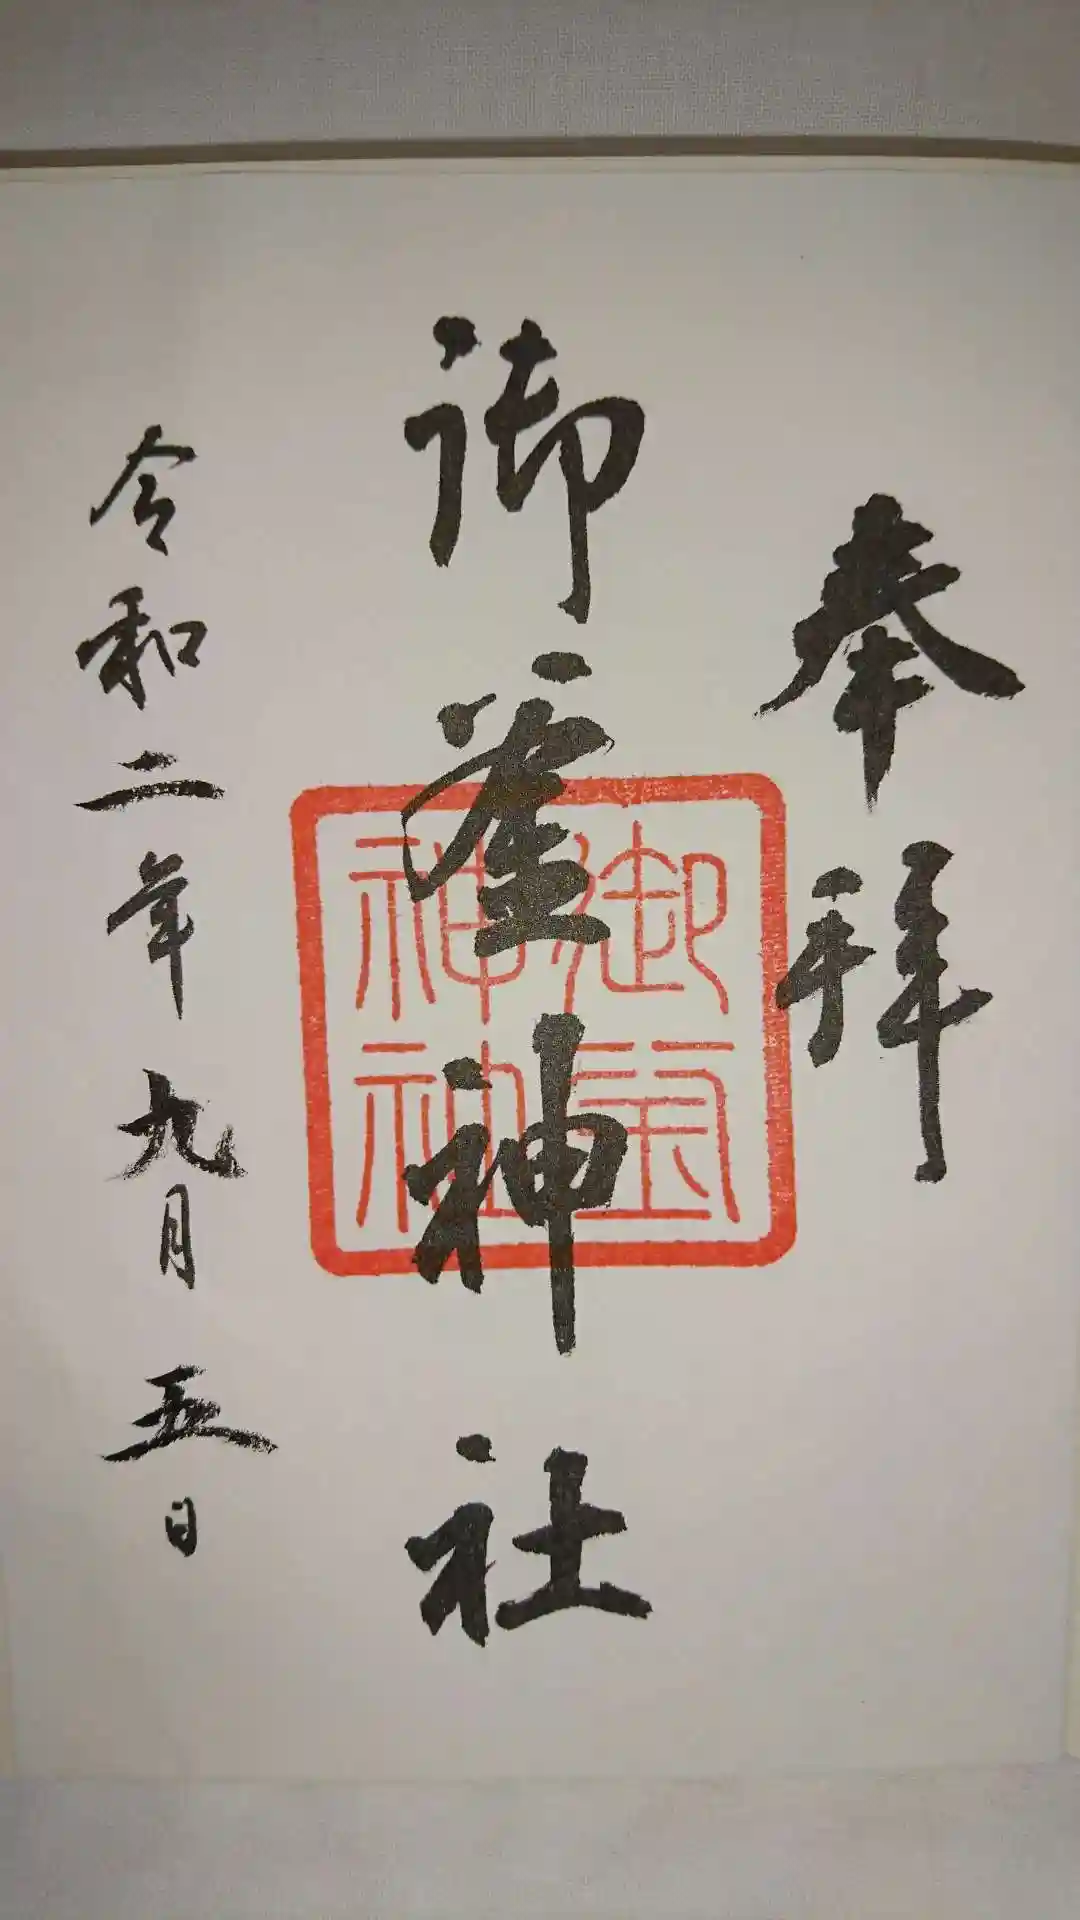 奉拝
御釜神社
御釜神社
令和二年九月五日